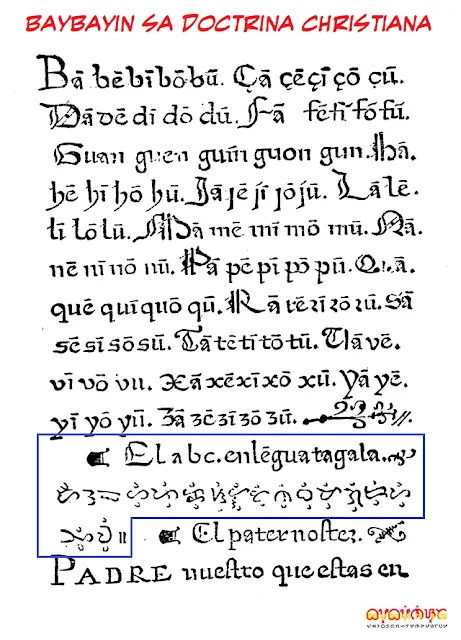 BAYBAYIN SA DOCTRINA CHRISTIANA
Bā bē bī bō bū. Çā çē çī çō çū.
Dā dē dī dō dū. Fā fē fī fō fū.
Guan guen guin guon gun. Hā.
hē hī hō hū. Jā jē jī jō jū. Lā lē.
lī lō lū. Mā mē mī mō mū. Nā.
nē nī nō nū. Pā pē pī pō pū. Quā.
quē quī quō qū. Rā rē rī rō rū. Sā
sē sī sō sū. Tā tē tī tō tū. Uā vē.
vī vō vu. Xā xē xī xō xū. Yā yē.
yī yō yū. Zā zē zī zō zū.
El abc. en lēgua tagala.
El pater noster.
PADRE nuestro que estas en